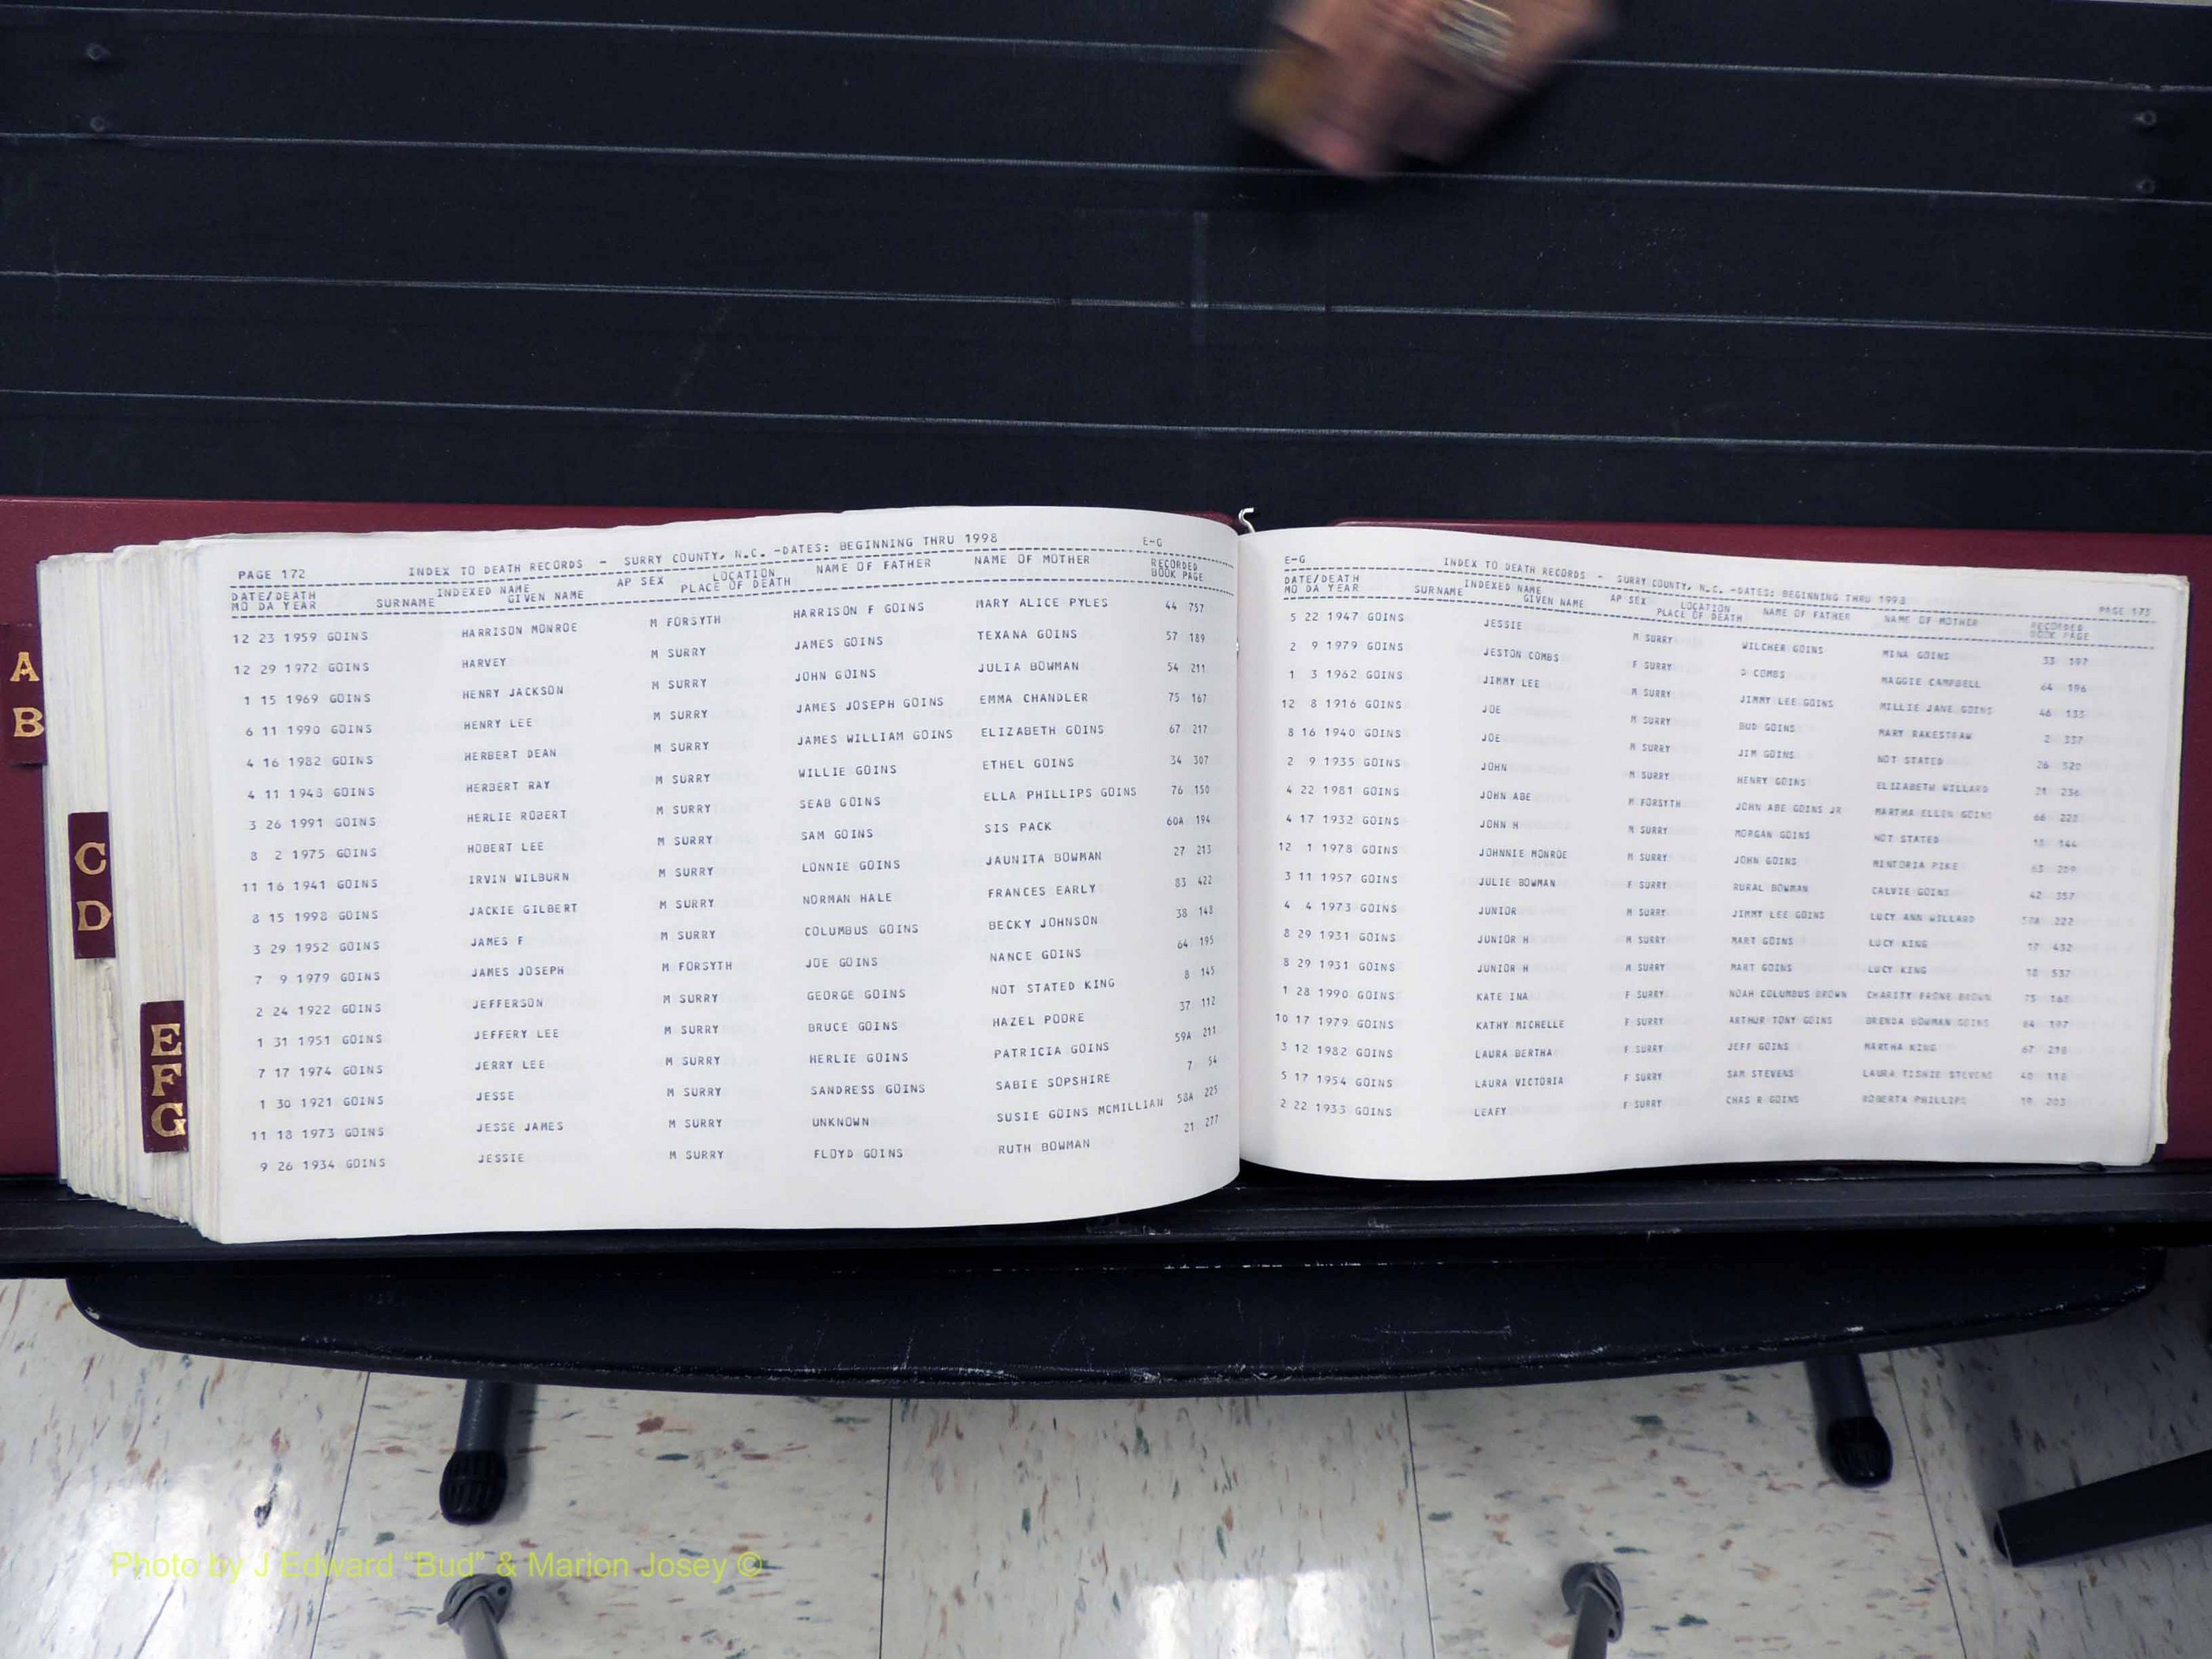 A
B
C
D
E
F
G
PAGE 172 INDEX TO DEATH RECORDS - SURRY COUNTY, N.C. -DATES: BEGINNING THRU 1998 E-G
DATE/DEATH INDEXED NAME AP SEX LOCATION NAME OF FATHER NAME OF MOTHER RECORDED
MO DA YEAR SURNAME GIVEN NAME PLACE OF DEATH BOOK PAGE
12 23 1959 GOINS HARRISON MONROE M FORSYTH HARRISON F GOINS MARY ALICE PYLES 44 757
12 29 1972 GOINS HARVEY M SURRY JAMES GOINS TEXANA GOINS 57 189
1 15 1969 GOINS HENRY JACKSON M SURRY JOHN GOINS JULIA BOWMAN 54 211
6 11 1990 GOINS HENRY LEE M SURRY JAMES JOSEPH GOINS EMMA CHANDLER 75 167
4 16 1982 GOINS HERBERT DEAN M SURRY JAMES WILLIAM GOINS ELIZABETH GOINS 67 217
4 11 1948 GOINS HERBERT RAY M SURRY WILLIE GOINS ETHEL GOINS 34 307
3 26 1991 GOINS HERLIE ROBERT M SURRY SEAB GOINS ELLA PHILLIPS GOINS 76 150
8 2 1975 GOINS HOBERT LEE M SURRY SAM GOINS SIS PACK 60A 194
11 16 1941 GOINS IRVIN WILBURN M SURRY LONNIE GOINS JAUNITA BOWMAN 27 213
8 15 1998 GOINS JACKIE GILBERT M SURRY NORMAN HALE FRANCES EARLY 83 422
3 29 1952 GOINS JAMES F M SURRY COLUMBUS GOINS BECKY JOHNSON 38 148
7 9 1979 GOINS JAMES JOSEPH M FORSYTH JOE GOINS NANCE GOINS 64 195
2 24 1922 GOINS JEFFERSON M SURRY GEORGE GOINS NOT STATED KING 8 145
1 31 1951 GOINS JEFFERY LEE M SURRY BRUCE GOINS HAZEL POORE 37 112
7 17 1974 GOINS JERRY LEE M SURRY HERLIE GOINS PATRICIA GOINS 59A 211
1 30 1921 GOINS JESSE M SURRY SANDRESS GOINS SABIE SOPSHIRE 7 54
11 18 1973 GOINS JESSE JAMES M SURRY UNKNOWN SUSIE GOINS MCMILLIAN 58A 225
9 26 1934 GOINS JESSIE M SURRY FLOYD GOINS RUTH BOWMAN 21 277
E-G INDEX TO DEATH RECORDS - SURRY COUNTY, N.C. -DATES: BEGINNING THRU 1998 PAGE 173
DATE/DEATH INDEXED NAME AP SEX LOCATION NAME OF FATHER NAME OF MOTHER RECORDED
MO DA YEAR SURNAME GIVEN NAME PLACE OF DEATH BOOK PAGE
5 22 1947 GOINS JESSIE M SURRY WILCHER GOINS MINA GOINS 33 197
2 9 1979 GOINS JESTON COMBS F SURRY COMBS MAGGIE CAMPBELL 64 196
1 3 1962 GOINS JIMMY LEE M SURRY JIMMY LEE GOINS MILLIE JANE GOINS 46
12 8 1916 GOINS JOE M SURRY BUD GOINS MARY RAKESTRAW 2 337
8 16 1940 GOINS JOE M SURRY JIM GOINS NOT STATED 26
2 9 1935 GOINS JOHN M SURRY HENRY GOINS ELIZABETH WILLARD 21 236
4 22 1981 GOINS JOHN ABE M FORSYTH JOHN ABE GOINS JR MARTHA ELLEN GOINS 66 228
4 17 1932 GOINS JOHN H M SURRY MORGAN GOINS NOT STATED 144
12 1 1978 GOINS JOHNNIE MONROE M SURRY JOHN GOINS MINTORIA PIKE 63 209
3 11 1957 GOINS JULIE BOWMAN F SURRY RURAL BOWMAN CALVIE GOINS 42 357
4 4 1973 GOINS JUNIOR M SURRY JIMMY LEE GOINS LUCY ANN WILLARD 222
8 29 1931 GOINS JUNIOR H M SURRY MART GOINS LUCY KING 17 432
8 29 1931 GOINS JUNIOR H M SURRY MART GOINS LUCY KING 18 537
1 28 1990 GOINS KATE INA F SURRY NOAH COLUMBUS BROWN CHARITY BROWN 75
10 17 1979 GOINS KATHY MICHELLE F SURRY ARTHUR TONY GOINS BRENDA BOWMAN GOINS 64 197
3 12 1982 GOINS LAURA BERTHA F SURRY JEFF GOINS MARTHA KING 67 218
5 17 1954 GOINS LAURA VICTORIA F SURRY SAM STEVENS LAURA TISHIE STEVENS 40 118
2 22 1933 GOINS LEAFY F SURRY CHAS R GOINS ROBERTA PHILLIPS 19 203
Photo by J Edward "Bud" & Marion Josey ©